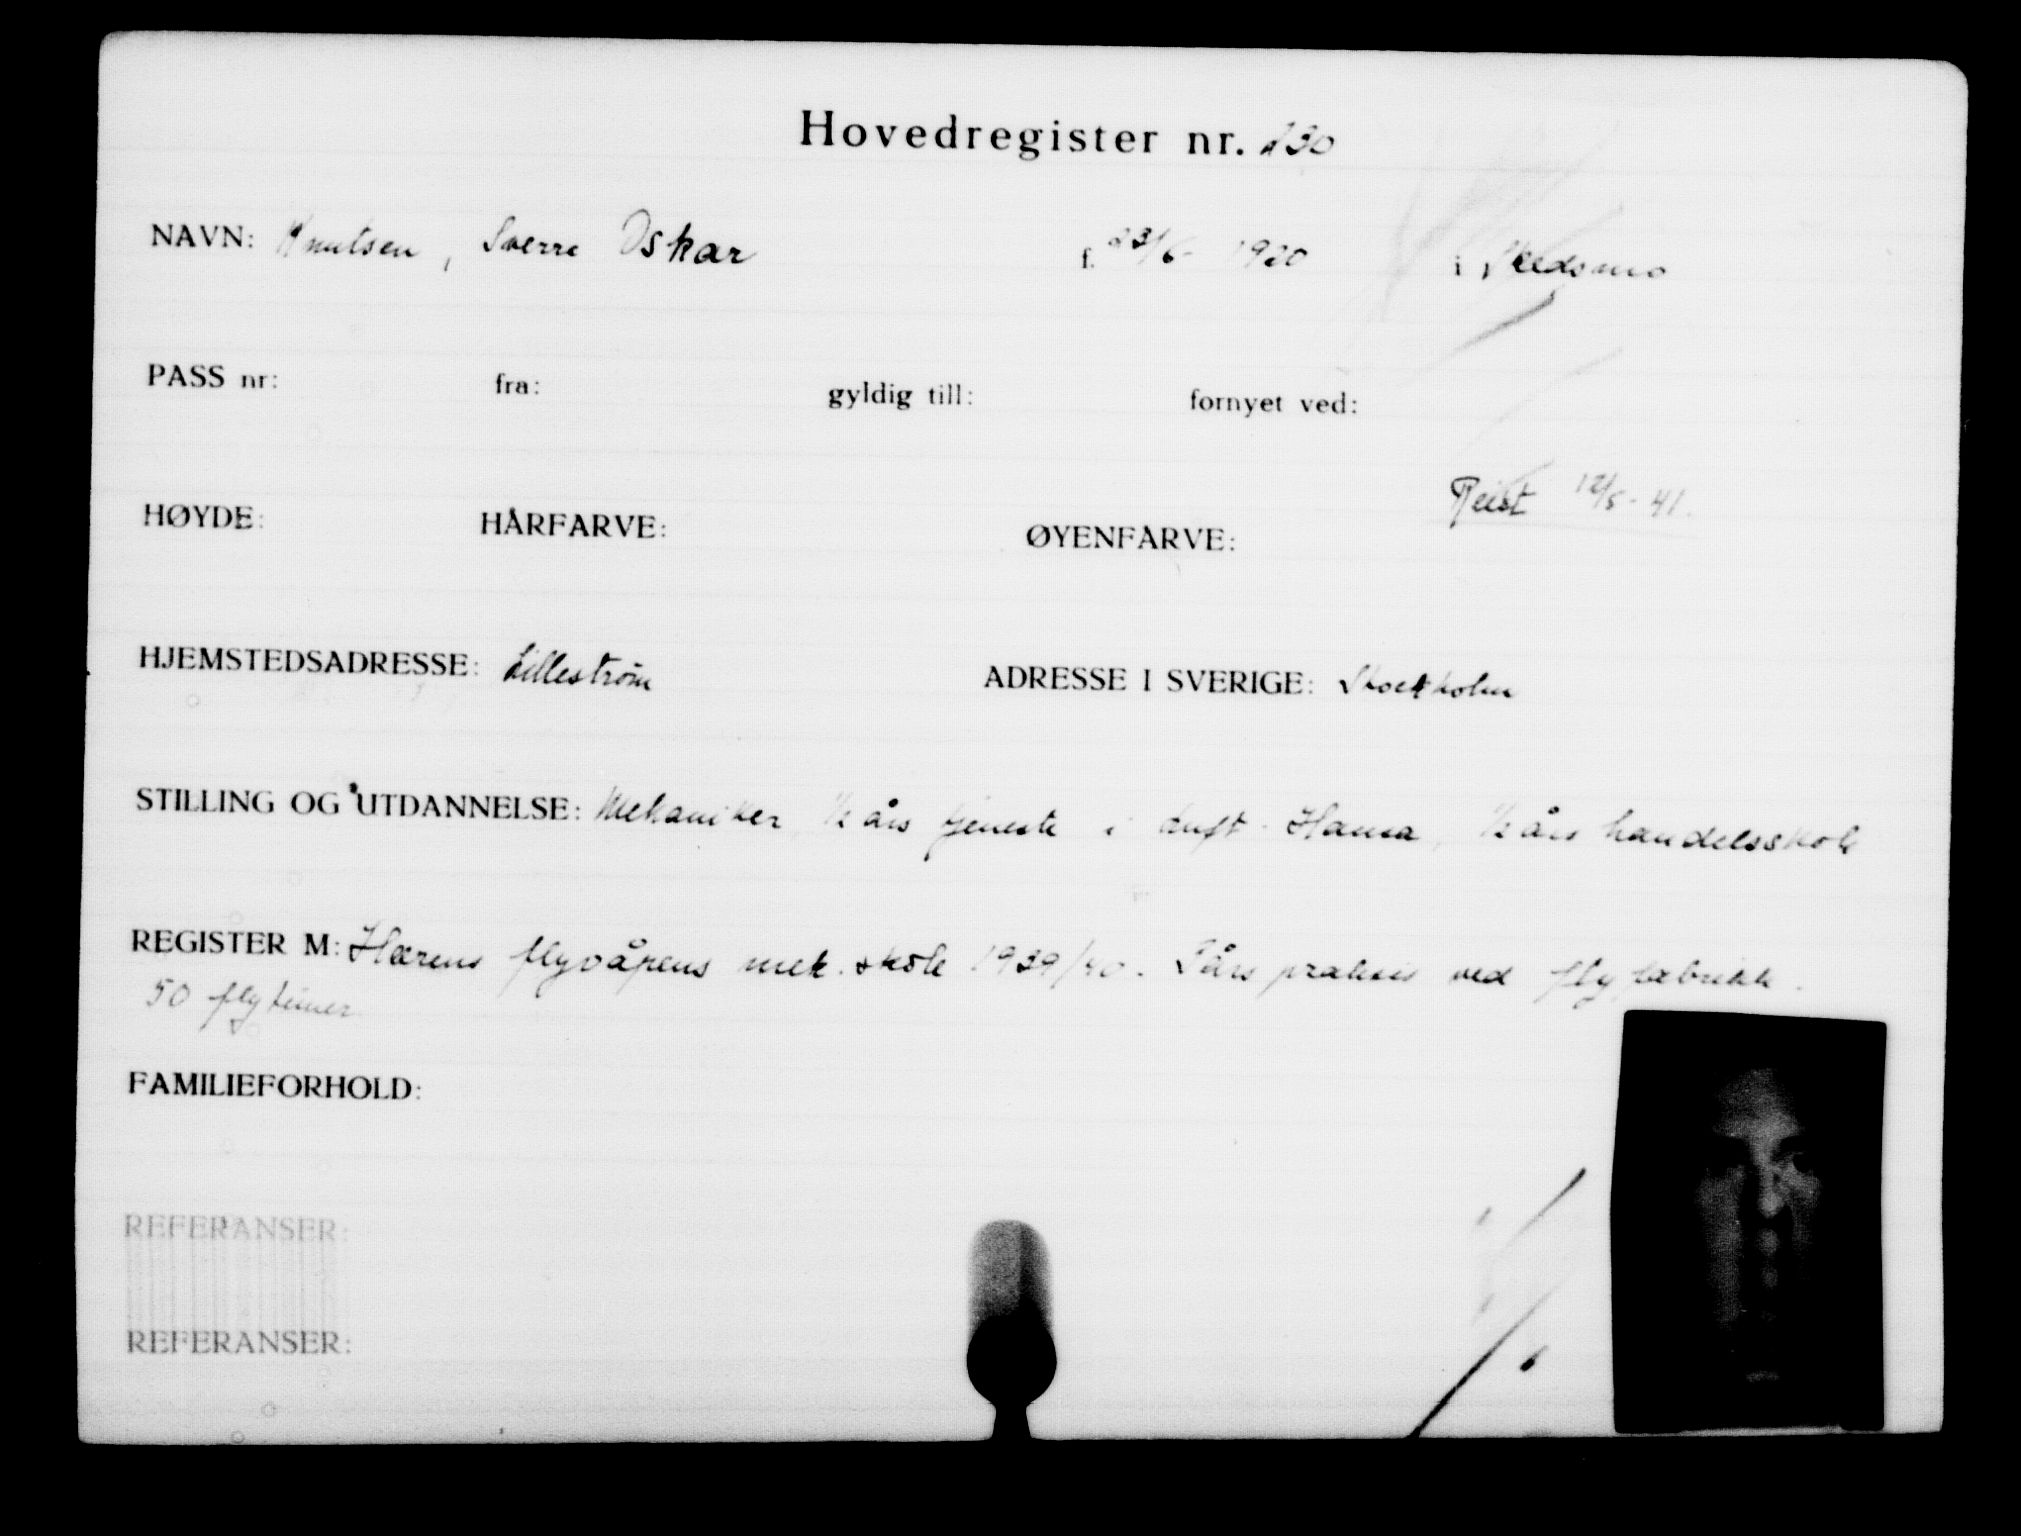 Hovedregister nr. 230
NAVN: Knutsen, Sverre Oskar f. 23/6 - 1920 i Skedsmo
PASS nr: fra: gyldig till: fornyet ved:
Reist 12/5 - 41.
HØYDE: HÅRFARVE: ØYENFARVE:
HJEMSTEDSADRESSE: Lillestrøm ADRESSE I SVERIGE: Stockholm
STILLING OG UTDANNELSE: Mekaniker, 1/2 års tjeneste i Luft-Hansa, 1/2 års handelsskole
REGISTER M: Hærens flyvåpens mek. skole 1939/40. års praksis ved flyfabrikk.
50 flytimer
FAMILIEFORHOLD:
REFERANSER:
REFERANSER: